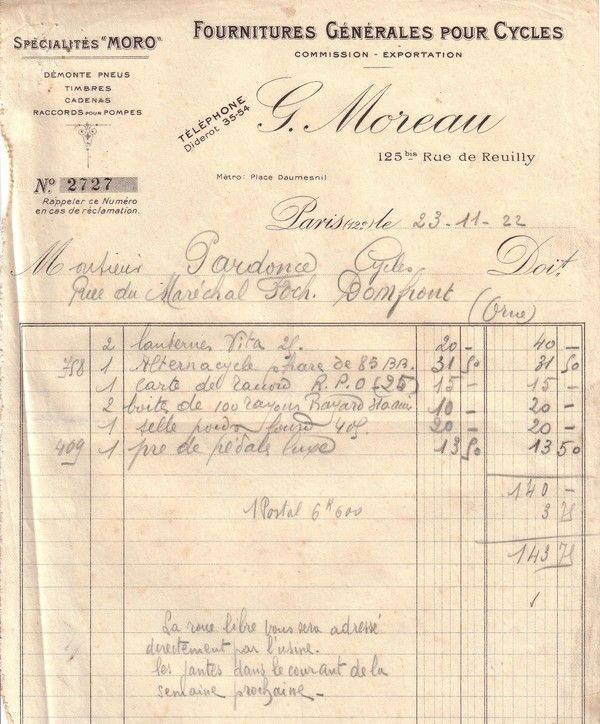 FOURNITURES GÉNÉRALES POUR CYCLES
COMMISSION - EXPORTATION
SPÉCIALITÉS "MORO"
DÉMONTE PNEUS
TIMBRES
CADENAS
RACCORDS POUR POMPES
TÉLÉPHONE
Diderot 35-54
G. Moreau
125 bis Rue de Reuilly
Métro: Place Daumesnil
No 2727
Rappeler ce Numéro
en cas de réclamation.
Paris (12e) le 23-11-22
Monsieur Pardonce Cycles Doit
Rue du Maréchal Foch. Domfront
(Orne)
2 lanternes Vita 20 - 40 -
758 1 Alternacycle phare de 85 BR. 31 50 31 50
1 carte de raccord R.P.O (25) 15 - 15 -
2 boites de 100 rayons Bayard 10 - 20 -
1 selle lourd 409. 20 - 20 -
409 1 pre de pédale luxe 13 50 13 50
140 -
1 Postal 6K600 3 75
143 75
La roue libre vous sera adressé
directement par l'usine.
les jantes dans le courant de la
semaine prochaine -